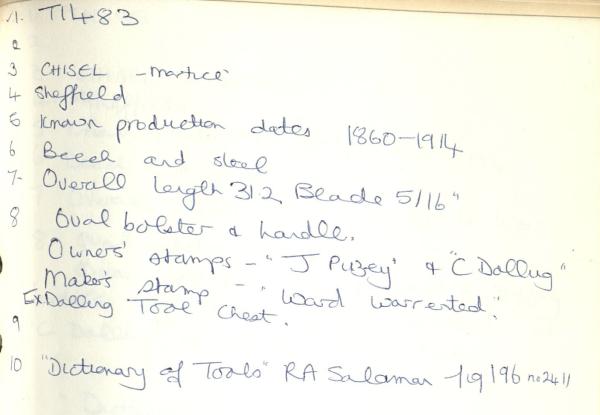 1. T1483
2
3 CHISEL - mortice
4 Sheffield
5 Known production dates 1860-1914
6 Beech and steel
7- Overall length 312 Blade 5/16"
8 Oval bolster & handle.
Owners' stamps - "J Puzey' & "C Dalling"
Maker's stamp - "Ward warrented".
Ex Dalling Tool Chest.
9
10 "Dictionary of Tools" RA Salaman 196 no 2411